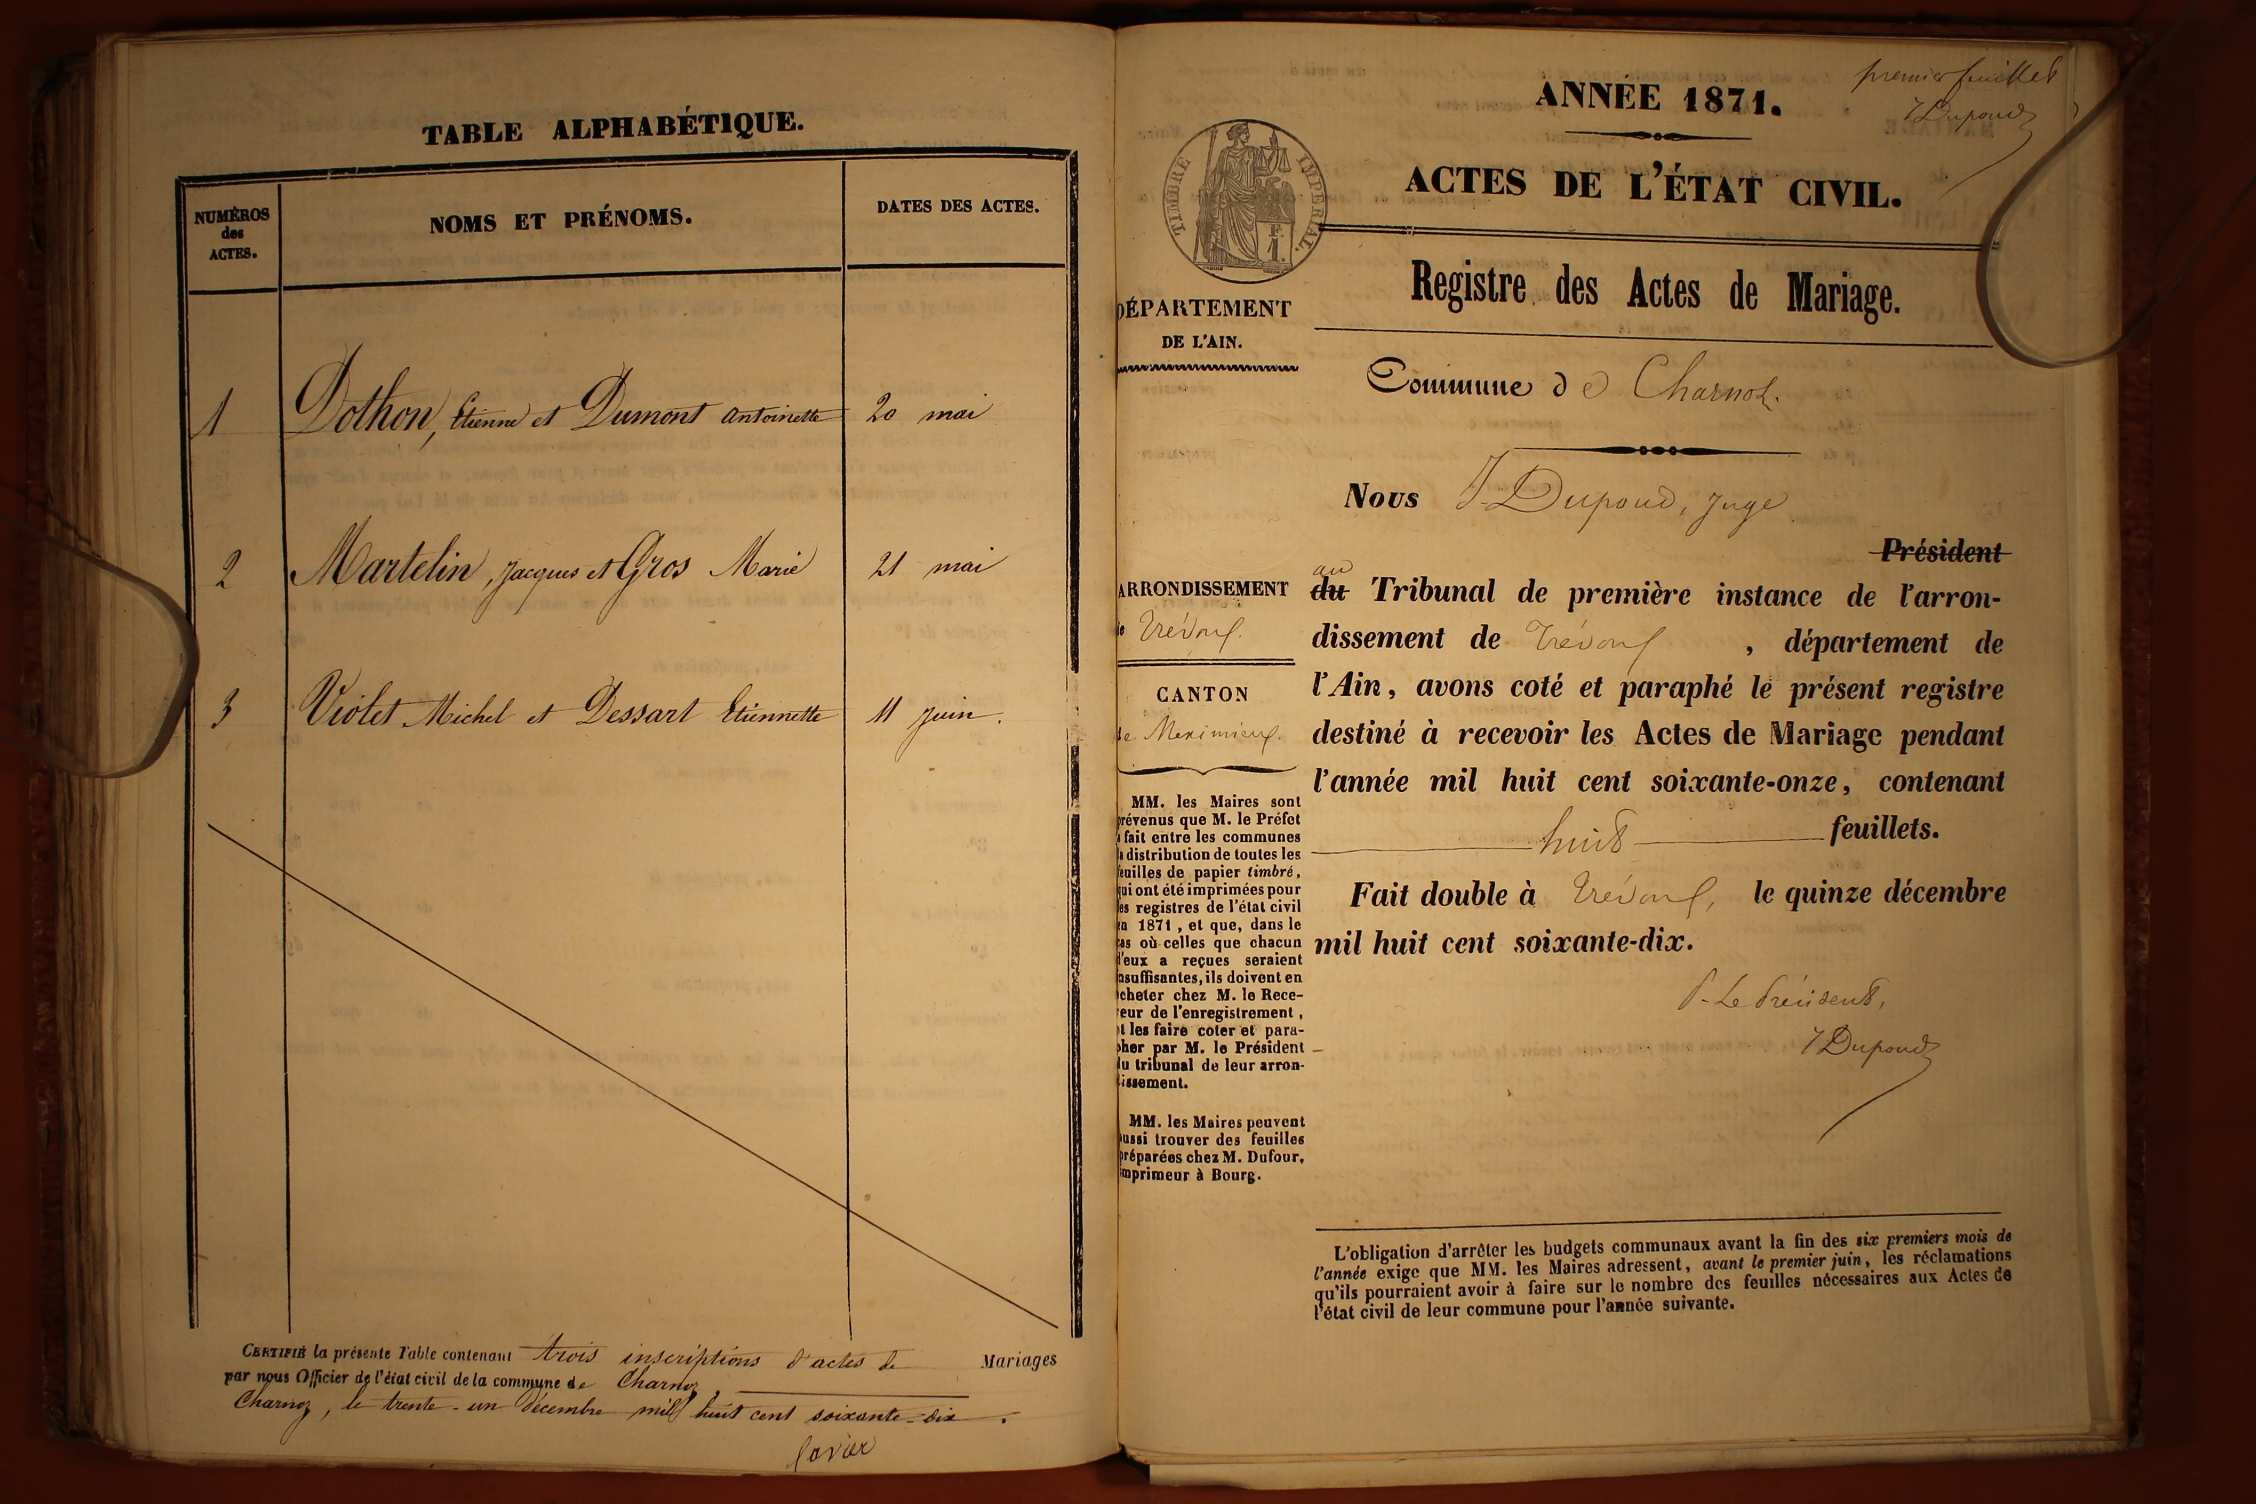 TABLE ALPHABÉTIQUE.
NUMÉROS
des
ACTES.
NOMS ET PRÉNOMS.
DATES DES ACTES.
1 Dothon, Etienne et Dumont Antoinette 20 mai
2 Martelin, Jacques et Gros Marie 21 mai
3 Violet Michel et Dessart Etiennette 11 juin.
CERTIFIÉ la présente Table contenant trois inscriptions d'actes de Mariages
par nous Officier de l'état civil de la commune de Charnoz,
Charnoz, le trente-un décembre mil huit cent soixante-dix.
premier feuillet
JDupoud
ANNÉE 1871.
ACTES DE L'ÉTAT CIVIL.
TIMBRE IMPÉRIAL.
F.
1.
Registre des Actes de Mariage.
DÉPARTEMENT
DE L'AIN.
Commune de Charnoz.
Nous J. Dupoud, Juge
Président
au
du Tribunal de première instance de l'arron-
dissement de Trévoux, département de
l'Ain, avons coté et paraphé le présent registre
destiné à recevoir les Actes de Mariage pendant
l'année mil huit cent soixante-onze, contenant
huit feuillets.
Fait double à Trévoux, le quinze décembre
mil huit cent soixante-dix.
P. Le Président,
JDupoud
ARRONDISSEMENT
de Trévoux.
CANTON
de Meximieux.
MM. les Maires sont
prévenus que M. le Préfet
a fait entre les communes
la distribution de toutes les
feuilles de papier timbré,
qui ont été imprimées pour
les registres de l'état civil
en 1871, et que, dans le
cas où celles que chacun
d'eux a reçues seraient
insuffisantes, ils doivent en
acheter chez M. le Rece-
veur de l'enregistrement,
et les faire coter et para-
pher par M. le Président
du tribunal de leur arron-
dissement.
MM. les Maires peuvent
aussi trouver des feuilles
préparées chez M. Dufour,
imprimeur à Bourg.
L'obligation d'arrêter les budgets communaux avant la fin des six premiers mois de
l'année exige que MM. les Maires adressent, avant le premier juin, les réclamations
qu'ils pourraient avoir à faire sur le nombre des feuilles nécessaires aux Actes de
l'état civil de leur commune pour l'année suivante.